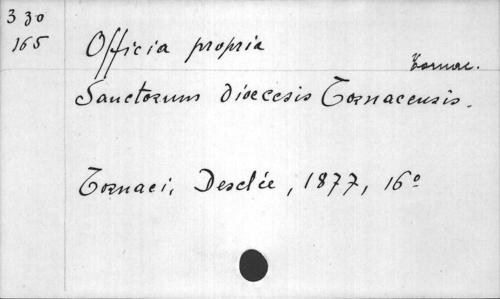 330
165
Officia propria
Tornac.
Sanctorum Dioecesis Tornacensis.
Tornaci, Desclée, 1877, 16º